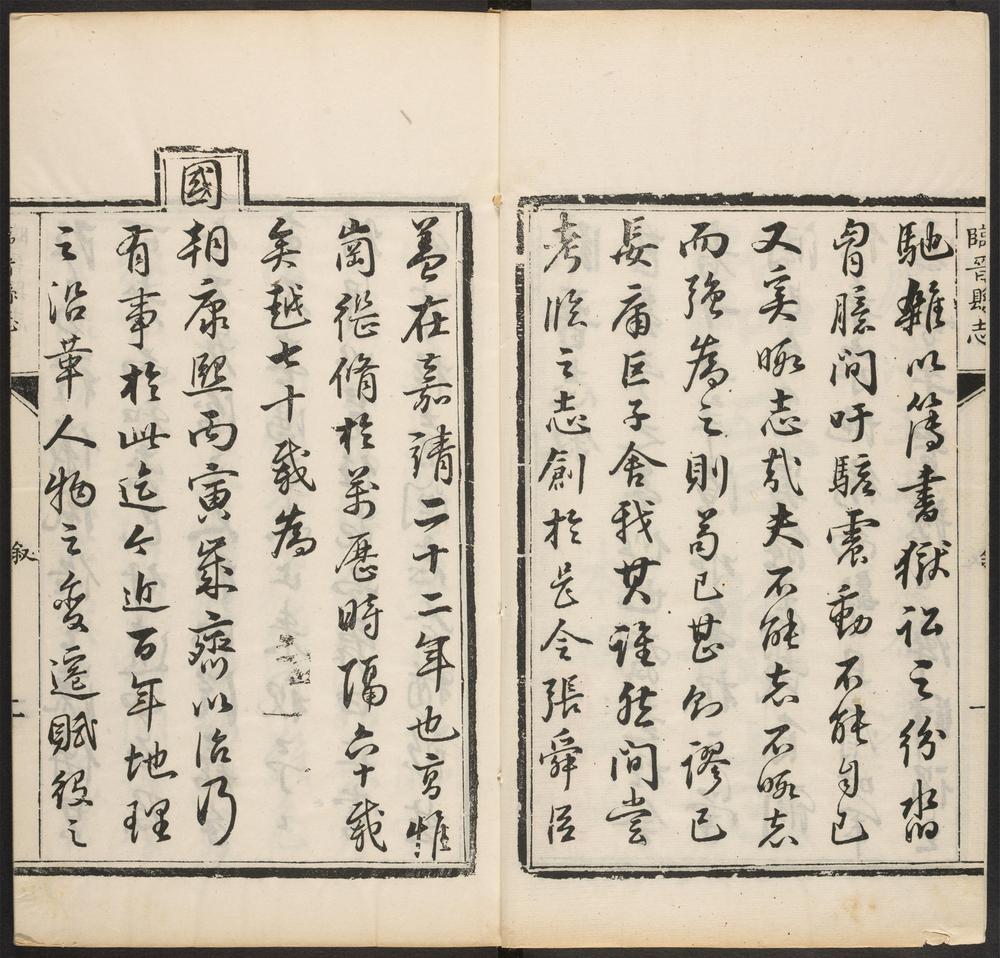 臨晉縣志
馳雜以簿書獄訟之紛沓
胷臆間吁駭震動不能自已
又奚暇志哉夫不能志不暇志
而強為之則苟已甚則謬已
長庸巨予舍我其誰然間嘗
考臨之志創於邑令張舜臣
一
蓋在嘉靖二十二年也高惟
崗從脩於萬歷時隔六十載
矣越七十載為
國
朝康熙丙寅歲齊以治乃
有事於此迄今近百年地理
之沿革人物之變遷賦役之
叙